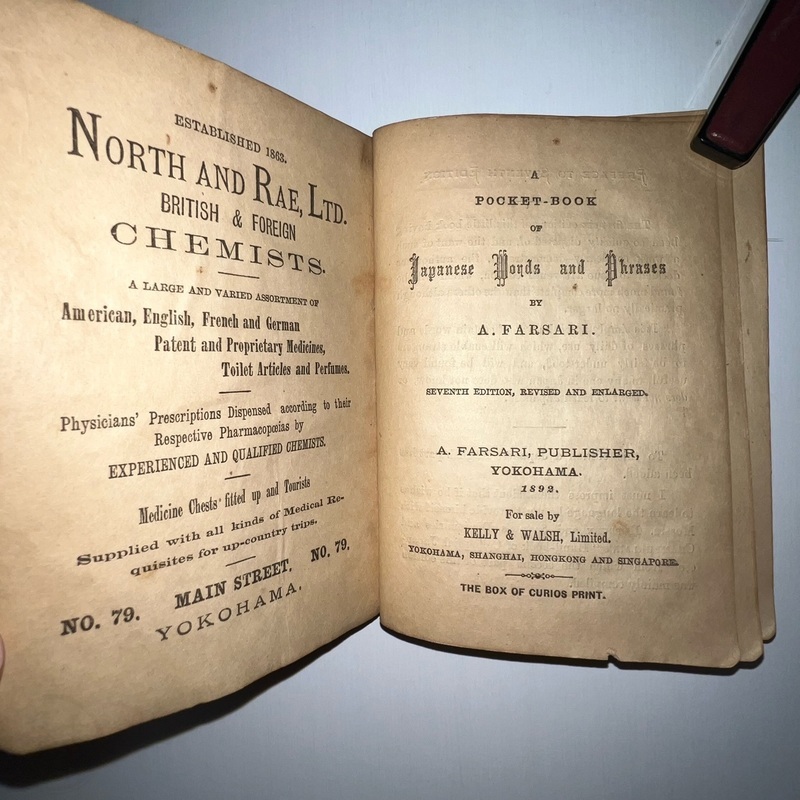 ESTABLISHED 1863.
NORTH AND RAE, LTD.
BRITISH & FOREIGN
CHEMISTS.
A LARGE AND VARIED ASSORTMENT OF
American, English, French and German
Patent and Proprietary Medicines,
Toilet Articles and Perfumes.
Physicians' Prescriptions Dispensed according to their
Respective Pharmacopœias by
EXPERIENCED AND QUALIFIED CHEMISTS.
Medicine Chests fitted up and Tourists
Supplied with all kinds of Medical Re-
quisites for up-country trips.
NO. 79. MAIN STREET, NO. 79,
YOKOHAMA.
A
POCKET-BOOK
OF
Japanese Words and Phrases
BY
A. FARSARI.
SEVENTH EDITION, REVISED AND ENLARGED.
A. FARSARI, PUBLISHER,
YOKOHAMA.
1892.
For sale by
KELLY & WALSH, Limited.
YOKOHAMA, SHANGHAI, HONGKONG AND SINGAPORE.
THE BOX OF CURIOS PRINT.